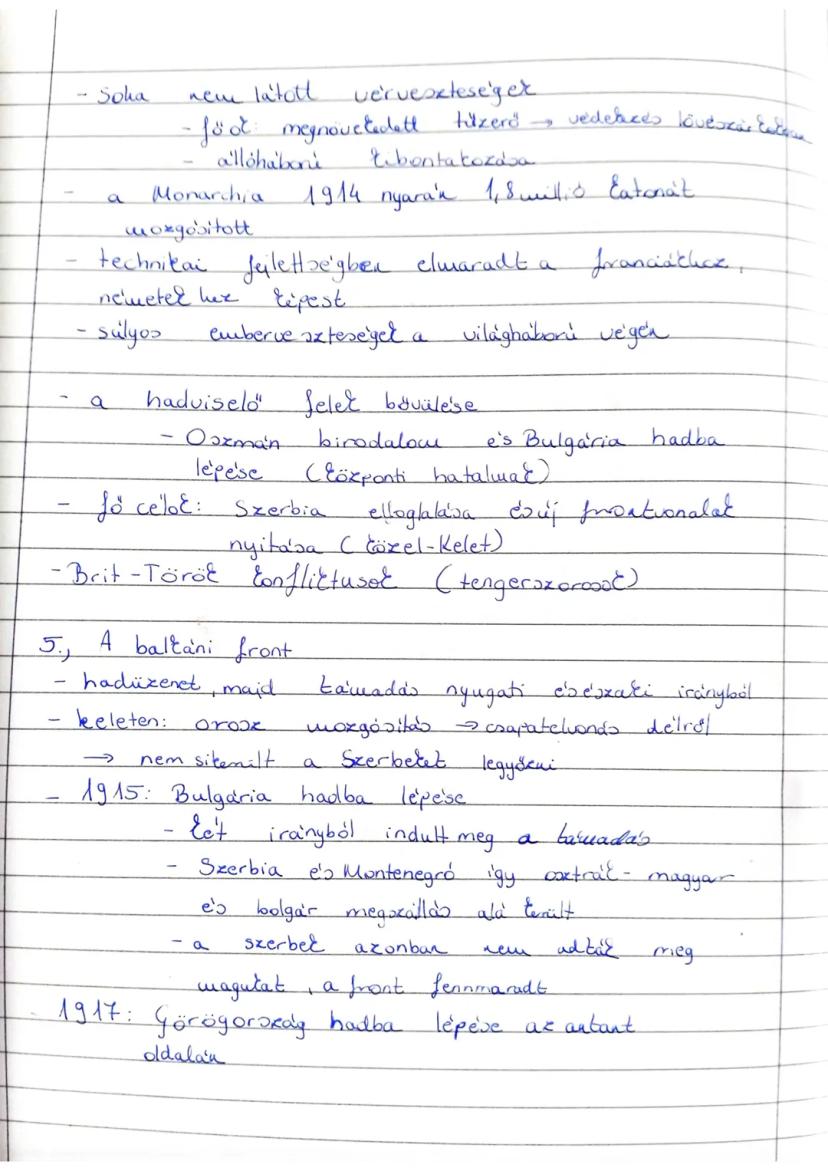 - Soha nem látott vérveszteségek
- fő ok: megnövekedett tűzerő → védekezés lövészárkokban
- állóháború kibontakozása
- a Monarchia 1914 nyarán 1,8 millió katonát
mozgósított
- technikai fejlettségben elmaradt a franciákhoz,
németekhez képest
- súlyos emberveszteségek a világháború végén
- a hadviselő felek bővülése
- Oszmán birodalom és Bulgária hadba
lépése (központi hatalmak)
- fő célok: Szerbia elloglalása és új frontvonalak
nyitása (közel-Kelet)
- Brit-Török konfliktusok (tengerszorosok)
5., A balkáni front
- hadüzenet, majd támadás nyugati és északi irányból
- keleten: orosz mozgósítás → csapatelvonás délről
→ nem sikerült a Szerbeket legyőzni
- 1915: Bulgária hadba lépése
- két irányból indult meg a támadás
- Szerbia és Montenegró így osztrák-magyar
és bolgár megszállás alá került
- a szerbek azonban nem adták meg
magukat, a front fennmaradt
- 1917: Görögország hadba lépése az antant
oldalán